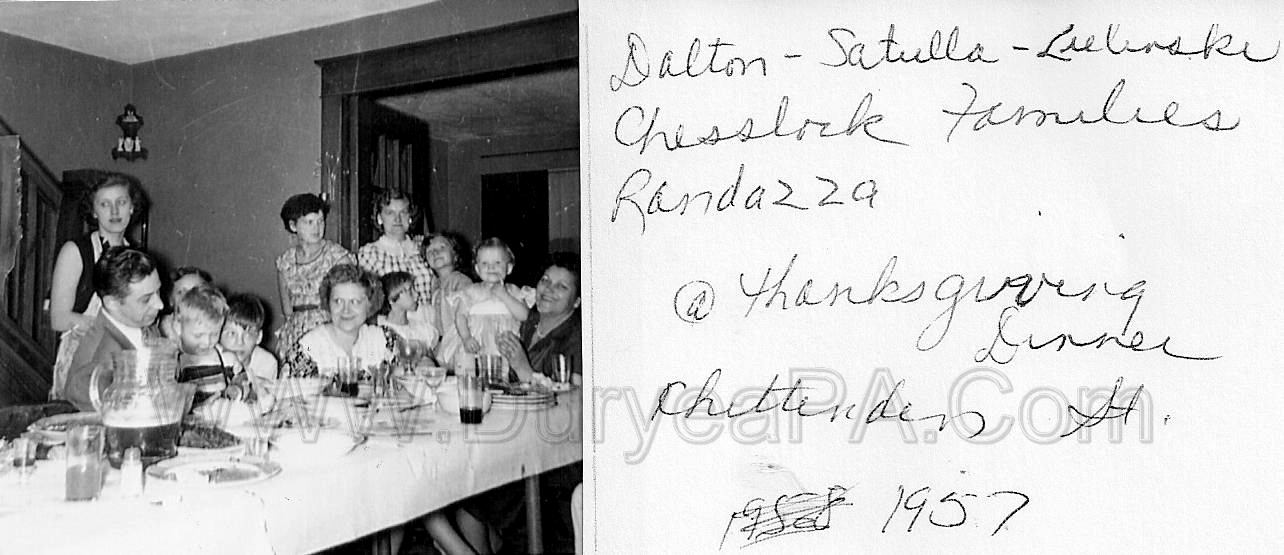 Dalton - Satulla - Zielinski
Chesslock Families
Randazza
@ Thanksgiving
Dinner
Chittenden St.
1958 1957
www.DuryeaPA.Com